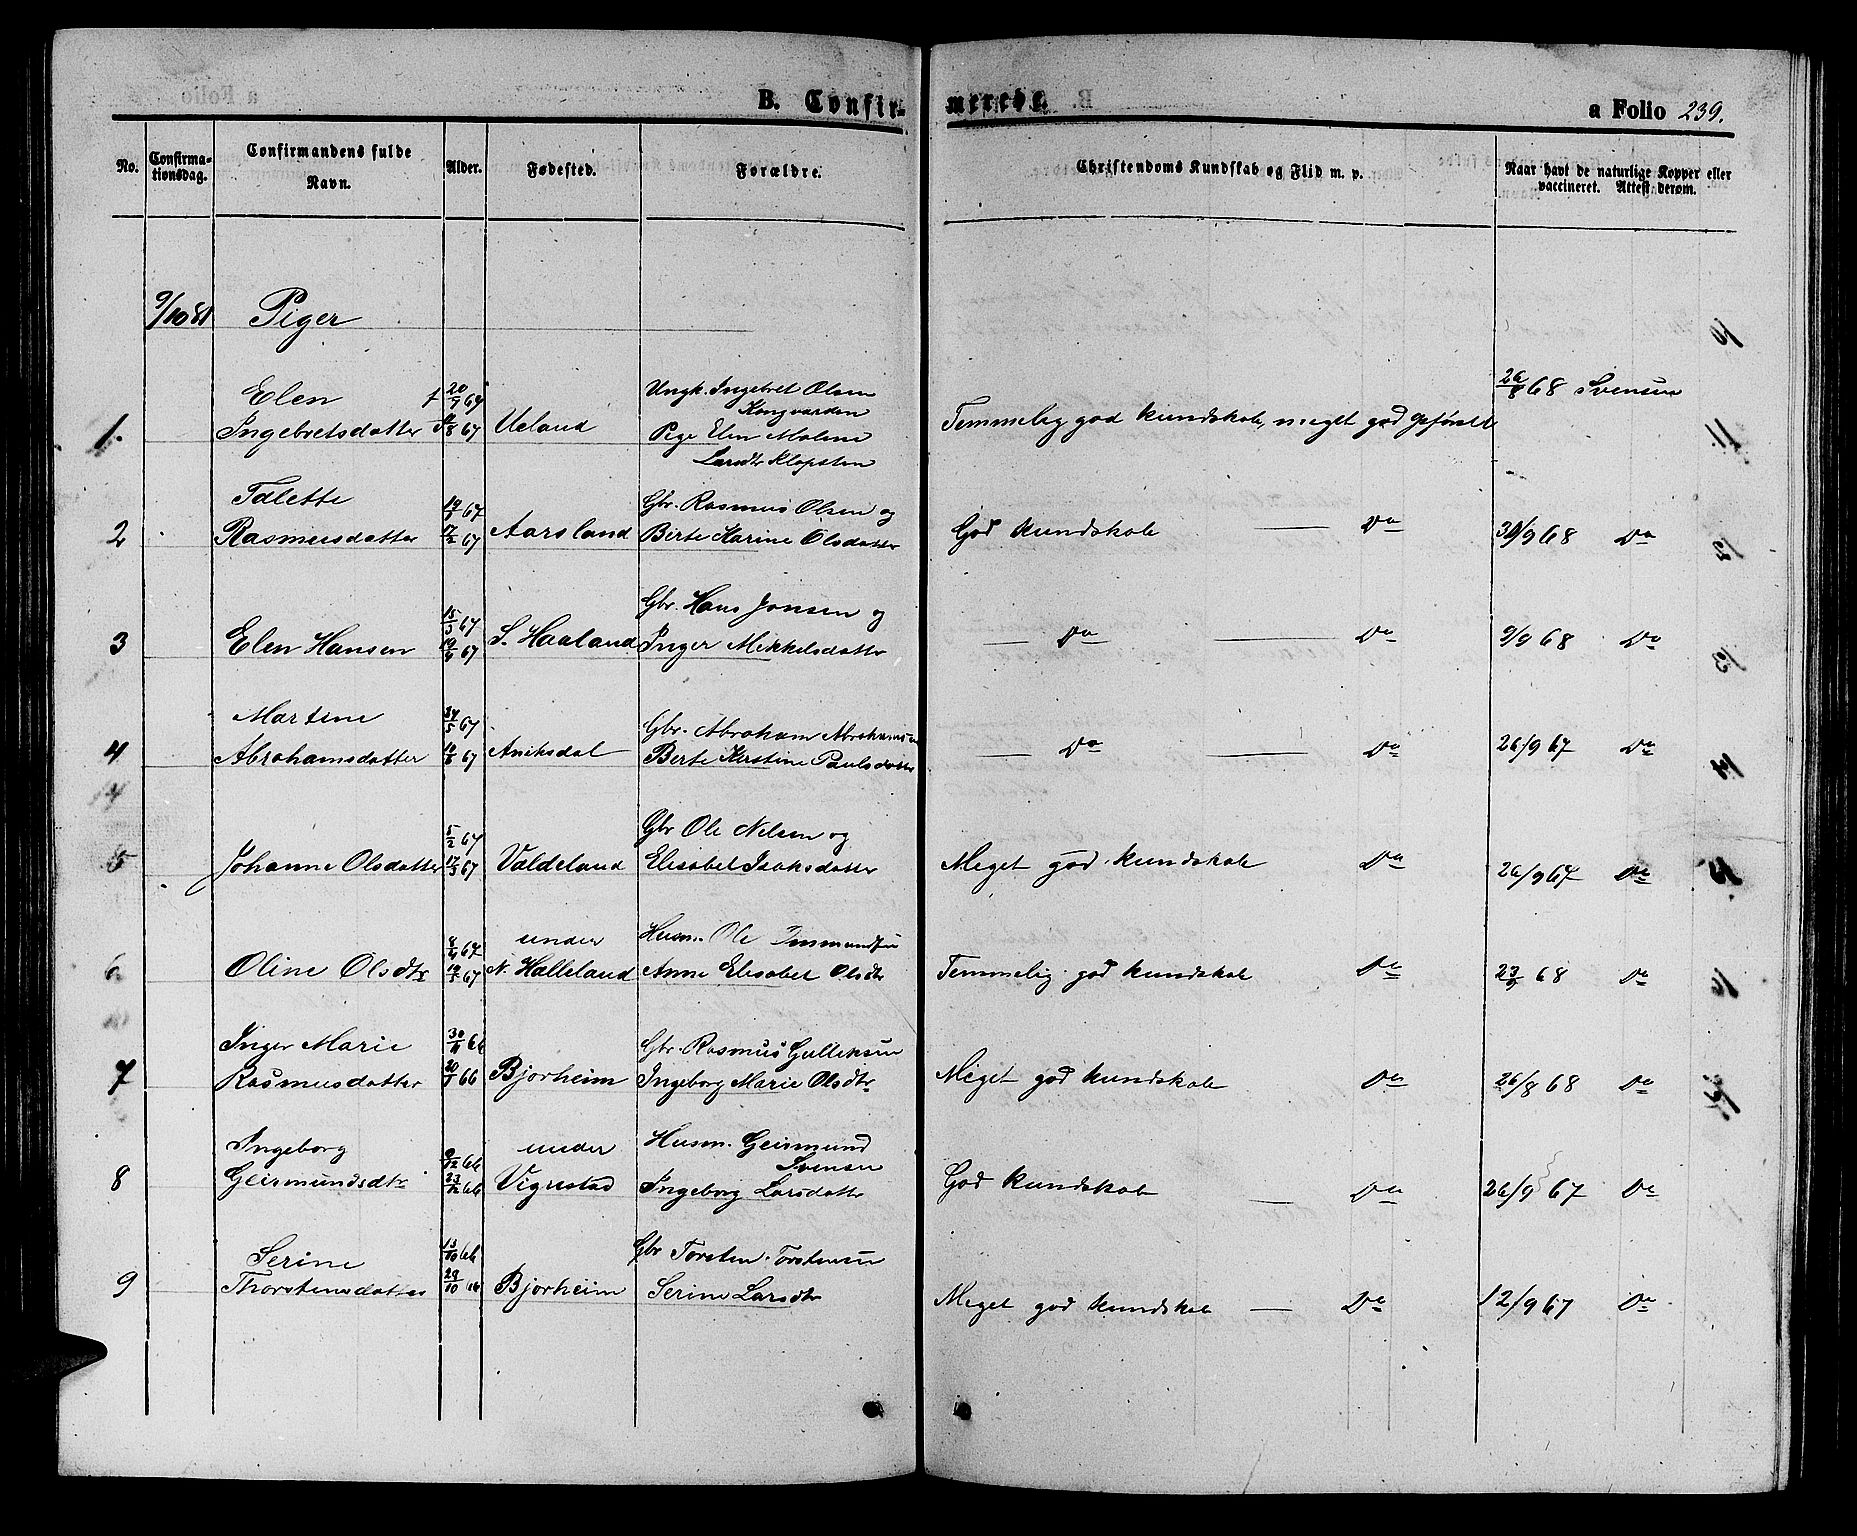 B. Confirmerede. a Folio 239.
No. Confirmationsdag. Confirmandens fulde Navn. Alder. Fødested. Forældre. Christendoms Kundskab og Flid m. v. Naar havt de naturlige Kopper eller vaccineret. Attest derom.
9/10 81 Piger
Elen f 20/7 67 Ungk. Ingebret Olsen 26/8 68 Svensen
1. Ingebretsdatter /8 67 Ueland Kongvarden Temmelig god kundskab, meget god Opførsel
Pige Elen Malene
Larsdtr Klopsten
Talette 19/1 67 Gbr. Rasmus Olsen og
2 Rasmusdatter 17/2 67 Aarsland Birte Karine Olsdatter God kundskab — Do 30/9 68 Do
15/3 67 Gbr. Hans Jonsen og
3 Elen Hansen 19/4 67 S. Haaland Inger Mikkelsdatter — Do — Do 9/9 68 Do
Martine /5 67 Gbr. Abraham Abrahamsen
4 Abrahamsdatter 10/6 67 Aniksdal Berte Kirstine Paulsdatter — Do — Do 26/9 67 Do
5/2 67 Gbr Ole Nilsen og
5 Johanne Olsdatter 17/3 67 Valdeland Elisabet Isaksdatter Meget god kundskab Do 26/9 67 Do
8/4 67 under Husm. Ole
6 Oline Olsdtr 19/5 67 N. Hølleland Anne Elisabet Olsdtr Temmelig god kundskab Do 23/9 68 Do
Inger Marie 30/11 66 Gbr. Rasmus Gulleksen
7 Rasmusdatter 20/1 66 Bjorheim Ingeborg Marie Olsdtr Meget god kundskab Do 26/8 68 Do
Ingeborg 9/12 66 under Husm. Geirmund
8 Geirmundsdtr 23/12 66 Vigrestad Svensen
Ingeborg Larsdatter God kundskab — Do 26/9 67 Do
Serine 13/10 66 Gbr Torsten Torstensen
9 Thorstensdatter 28/10 66 Bjorheim Serine Larsdtr Meget god kundskab — Do 12/9 67 Do